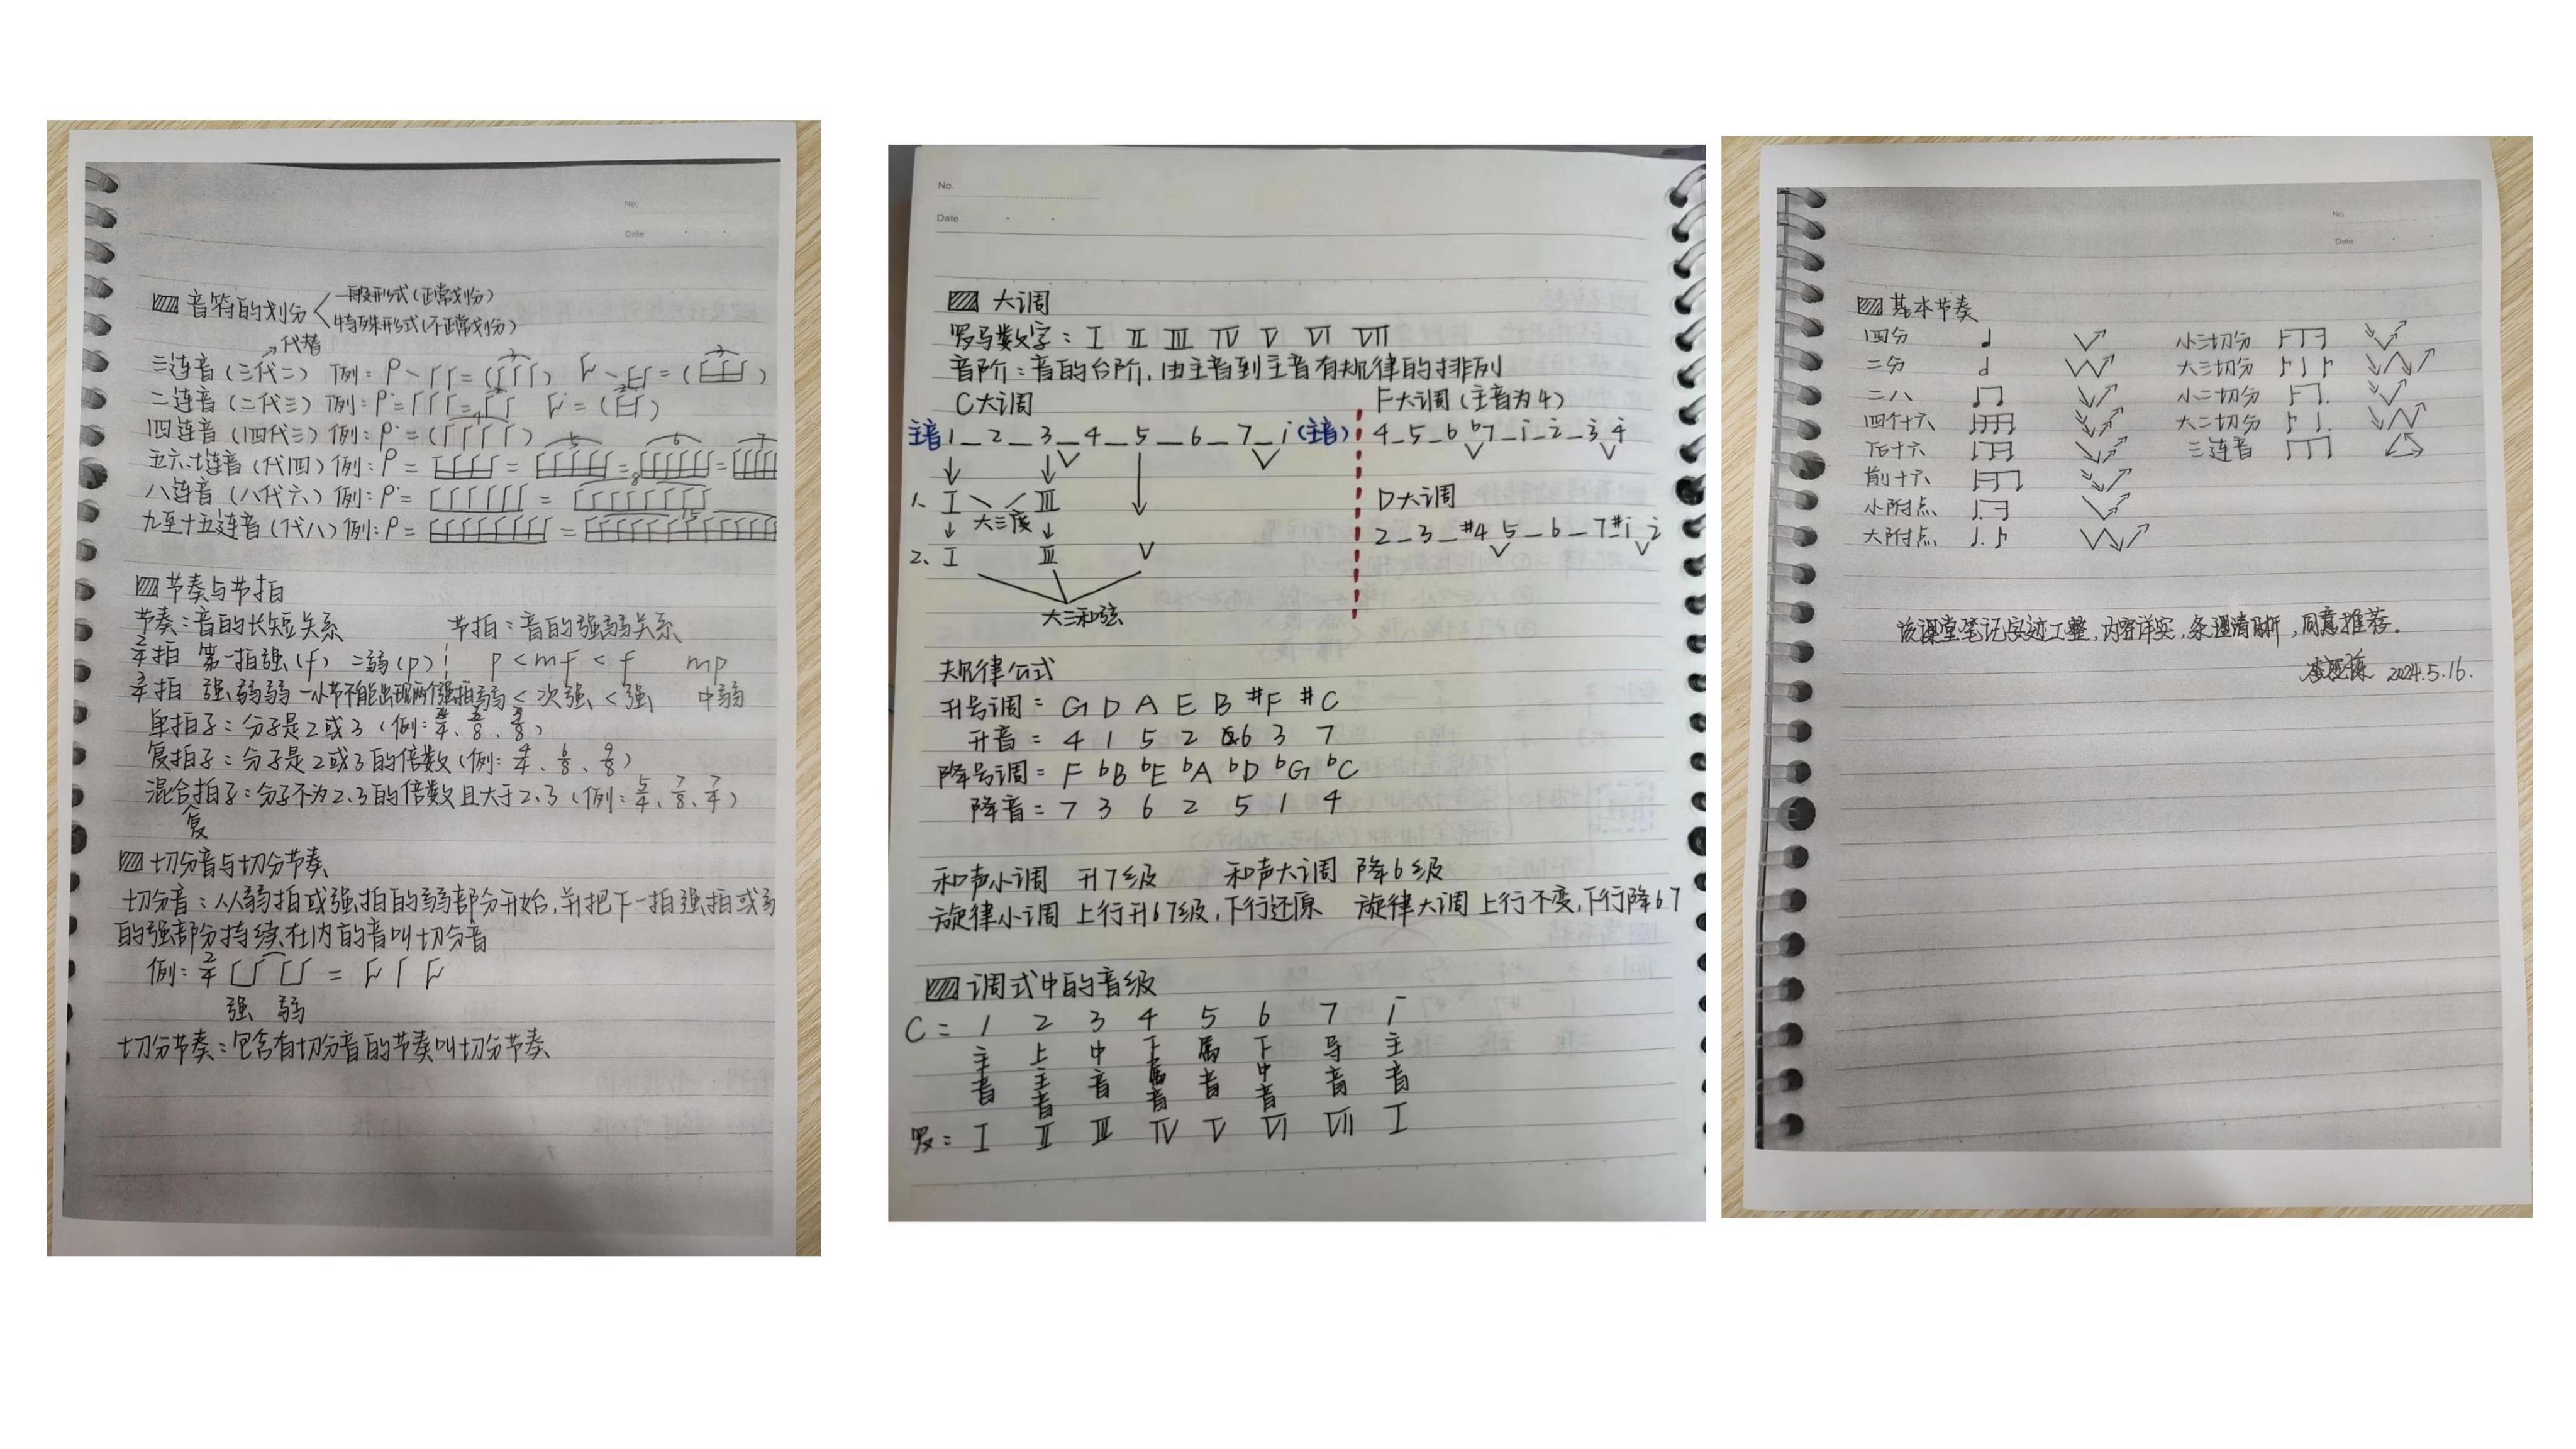 No.
Date
音符的划分
一般形式(正常划分)
特殊形式(不正常划分)
代替
三连音(三代二) 例:
二连音(二代三) 例:
四连音(四代三) 例:
五六七连音(代四) 例:
八连音(八代六) 例:
九至十五连音(代八) 例:
节奏与节拍
节奏:音的长短关系 节拍:音的强弱关系
2/4拍 第一拍强(f) 二弱(p) p<mf<f mp
3/4拍 强弱弱 一小节不能出现两个强拍 弱<次强<强 中弱
单拍子:分子是2或3(例:
复拍子:分子是2或3的倍数(例:4/4、6/8、9/8)
混合拍子:分子不为2、3的倍数且大于2、3(例:5/4、7/8、7/4)
复
切分音与切分节奏
切分音:从弱拍或强拍的弱部分开始,并把下一拍强拍或弱
的强部分持续在内的音叫切分音
例:2/4
强 弱
切分节奏:包含有切分音的节奏叫切分节奏
No.
Date
大调
罗马数字:I II III IV V VI VII
音阶:音的台阶,由主音到主音有规律的排列
C大调 F大调(主音为4)
主音1_2_3_4_5_6_7_i(主音) 4_5_6_b7_i_2_3_4
1、I III
大三度
D大调
2_3_#4_5_6_7_#i_2
2、I III V
大三和弦
规律公式
升号调=G D A E B #F #C
升音=4 1 5 2 6 3 7
降号调=F bB bE bA bD bG bC
降音=7 3 6 2 5 1 4
和声小调 升7级 和声大调 降6级
旋律小调 上行升67级,下行还原 旋律大调 上行不变,下行降67
调式中的音级
C= 1 2 3 4 5 6 7 i
主音 上主音 中音 下属音 属音 下中音 导音 主音
罗:I II III IV V VI VII I
No.
Date
基本节奏
四分 小三切分
二分 大三切分
二八 小二切分
四个十六 大二切分
后十六 三连音
前十六
小附点
大附点
该课堂笔记字迹工整,内容详实,条理清晰,同意推荐。
2024.5.16.